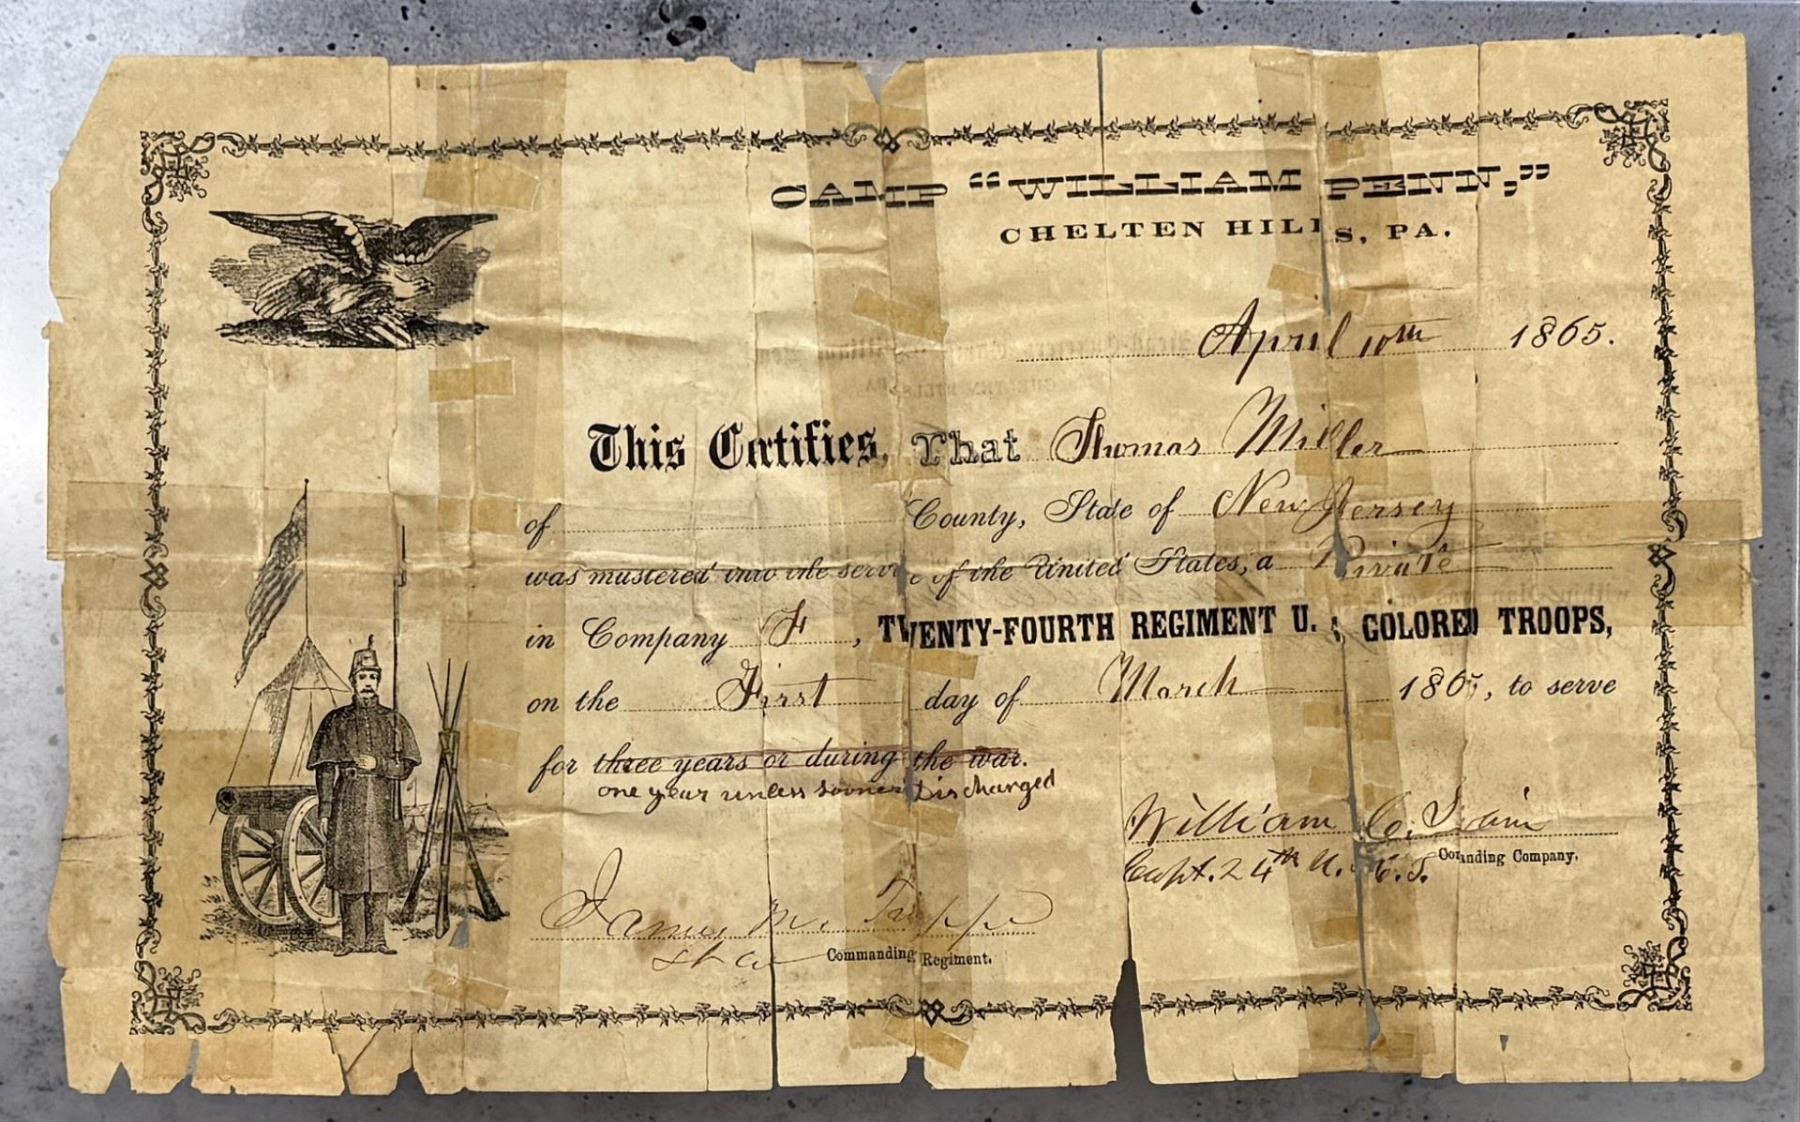 CAMP "WILLIAM PENN,"
CHELTEN HILLS, PA.
April 10th 1865.
This Certifies, That Thomas Miller
of County, State of New Jersey
was mustered into the service of the United States, a Private
in Company F, TWENTY-FOURTH REGIMENT U. S. COLORED TROOPS,
on the First day of March 1865, to serve
for three years or during the war.
one year unless sooner Discharged
William C.
Capt. 24th U. S. C. T. Commanding Company.
James M. Trippe
Commanding Regiment.